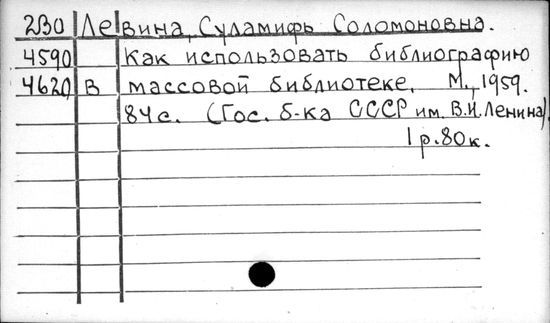 2130 Левина, Суламифь Соломоновна.
4590 Как использовать библиографию
4620 в массовой библиотеке. М., 1959.
84с. (Гос. б-ка СССР им. В.И. Ленина).
1 р. 80 к.